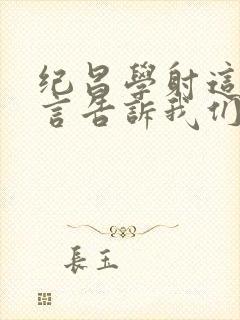 纪昌學射這
言告訴我们
長玉